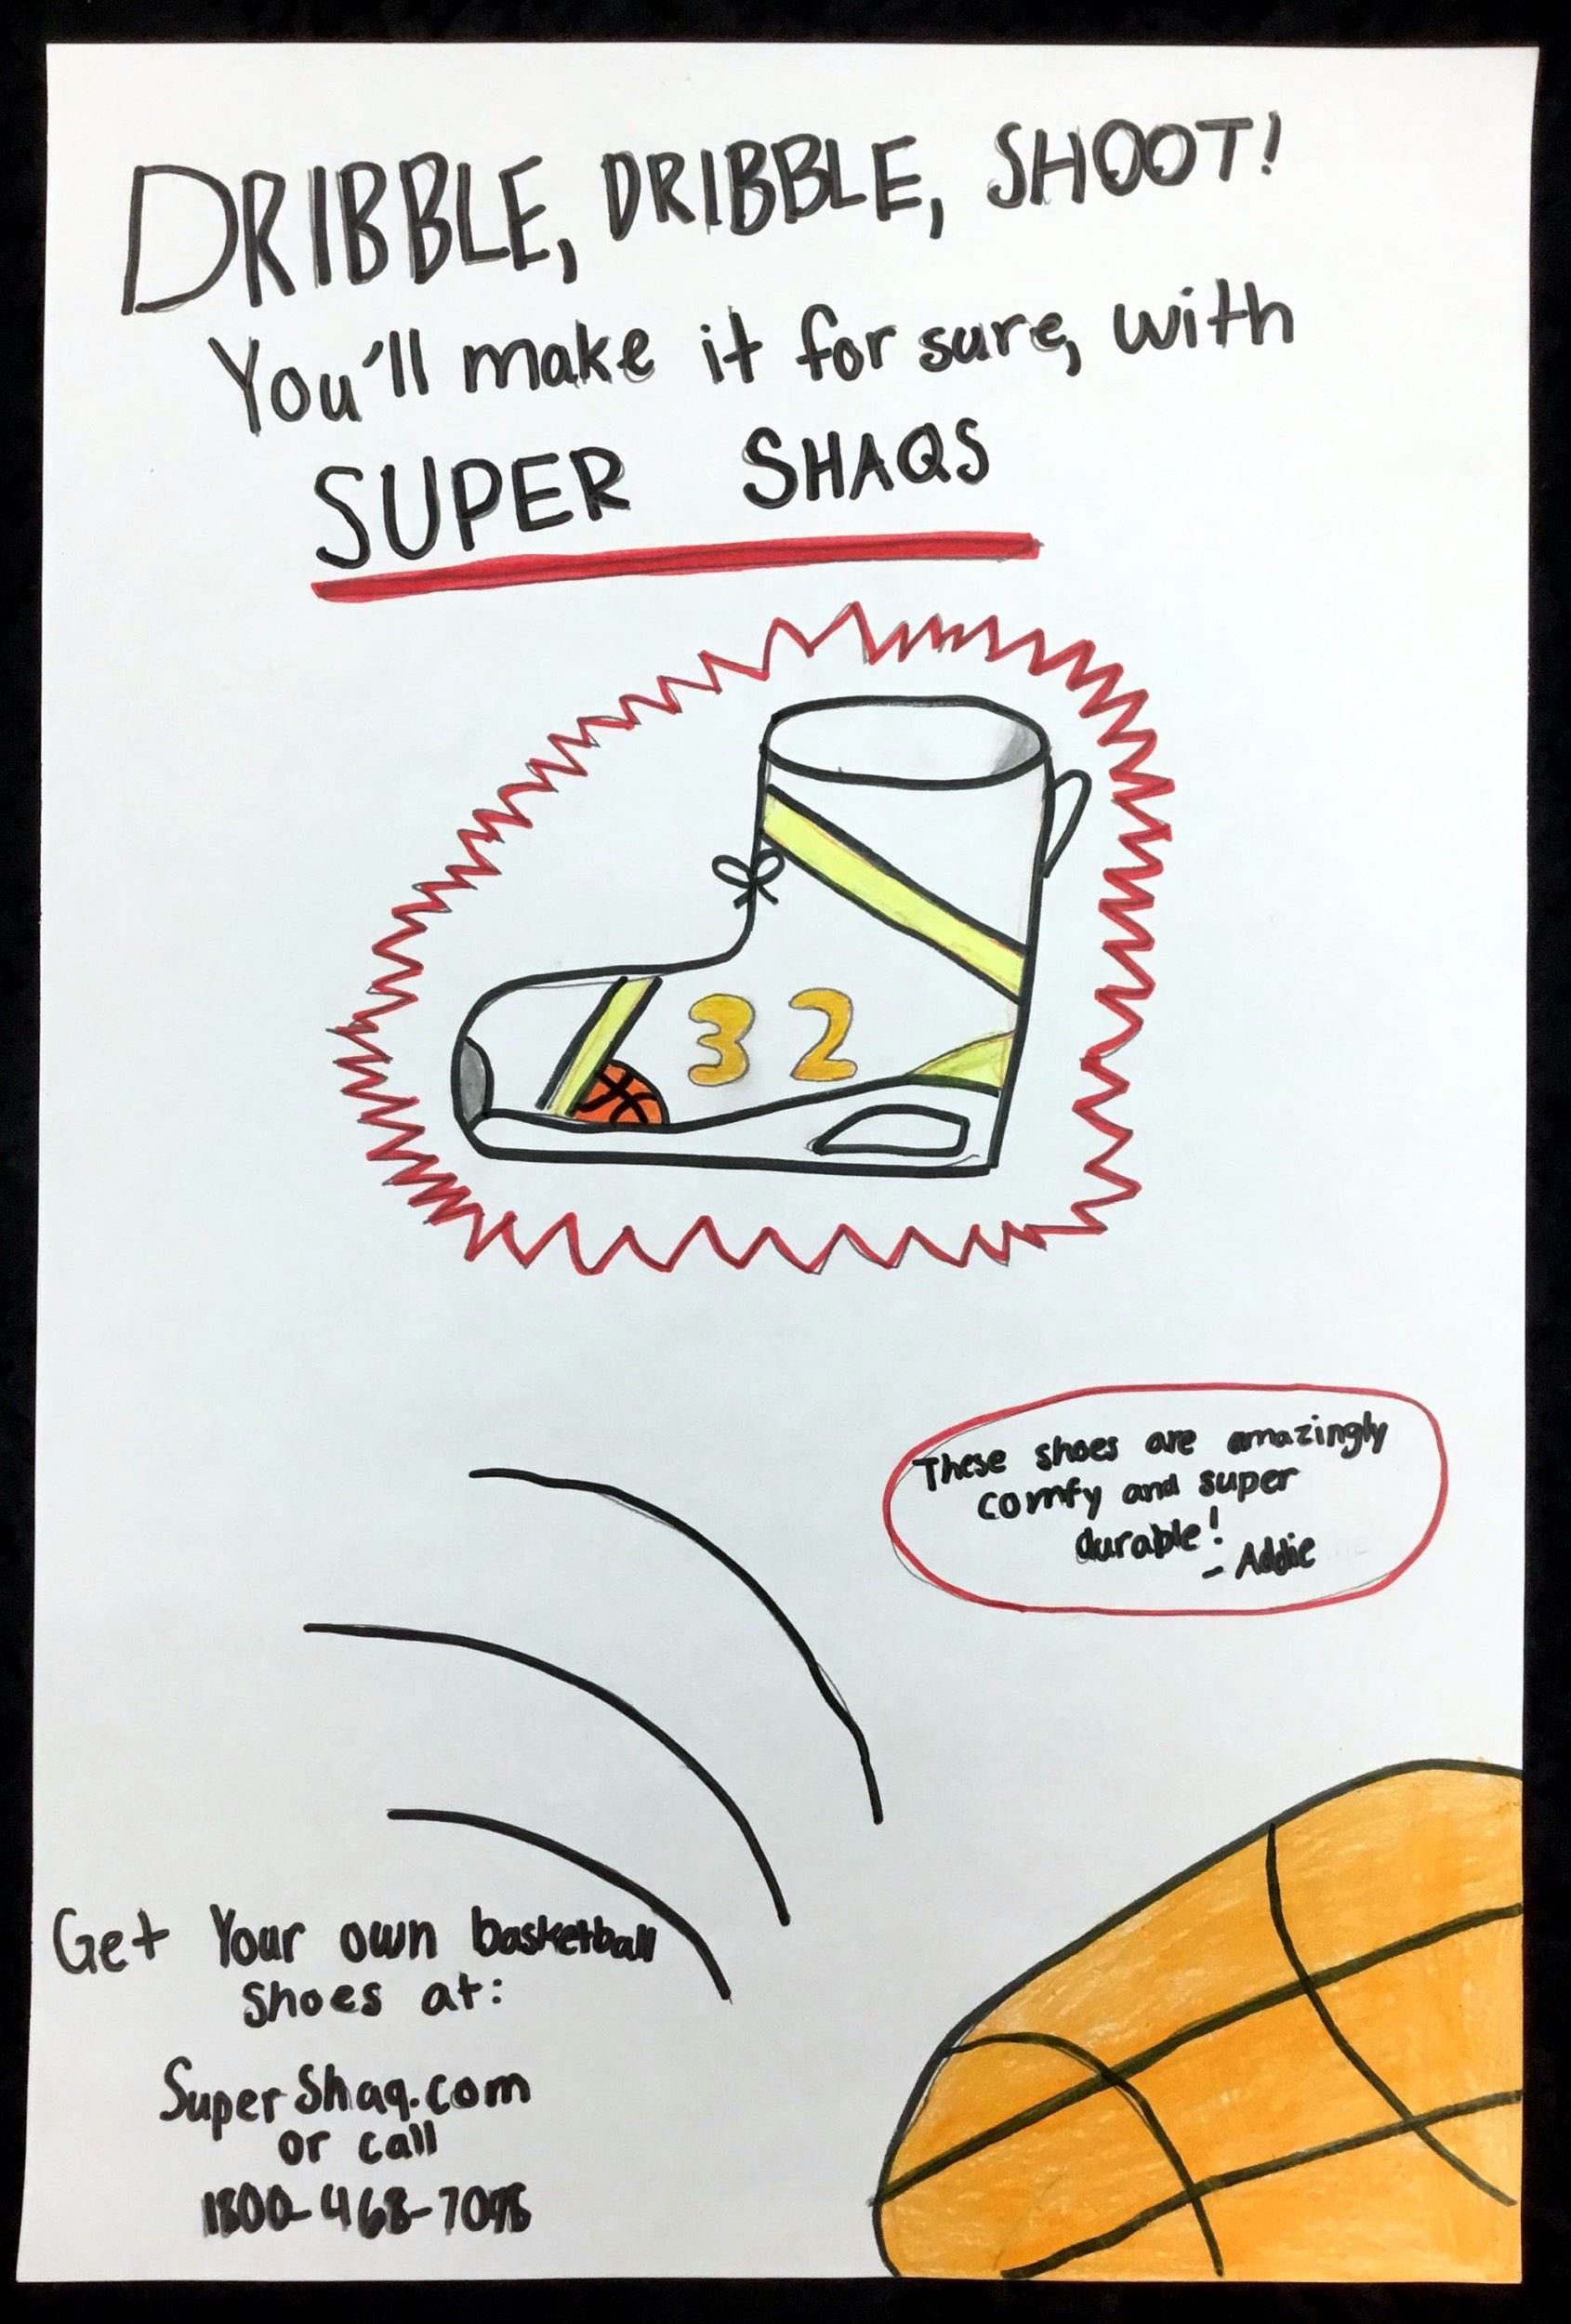 DRIBBLE, DRIBBLE, SHOOT!
You'll make it for sure, with
SUPER SHAQS
32
These shoes are amazingly
comfy and super
durable!
- Addie
Get Your own basketball
shoes at:
SuperShaq.com
or call
1800-468-7098